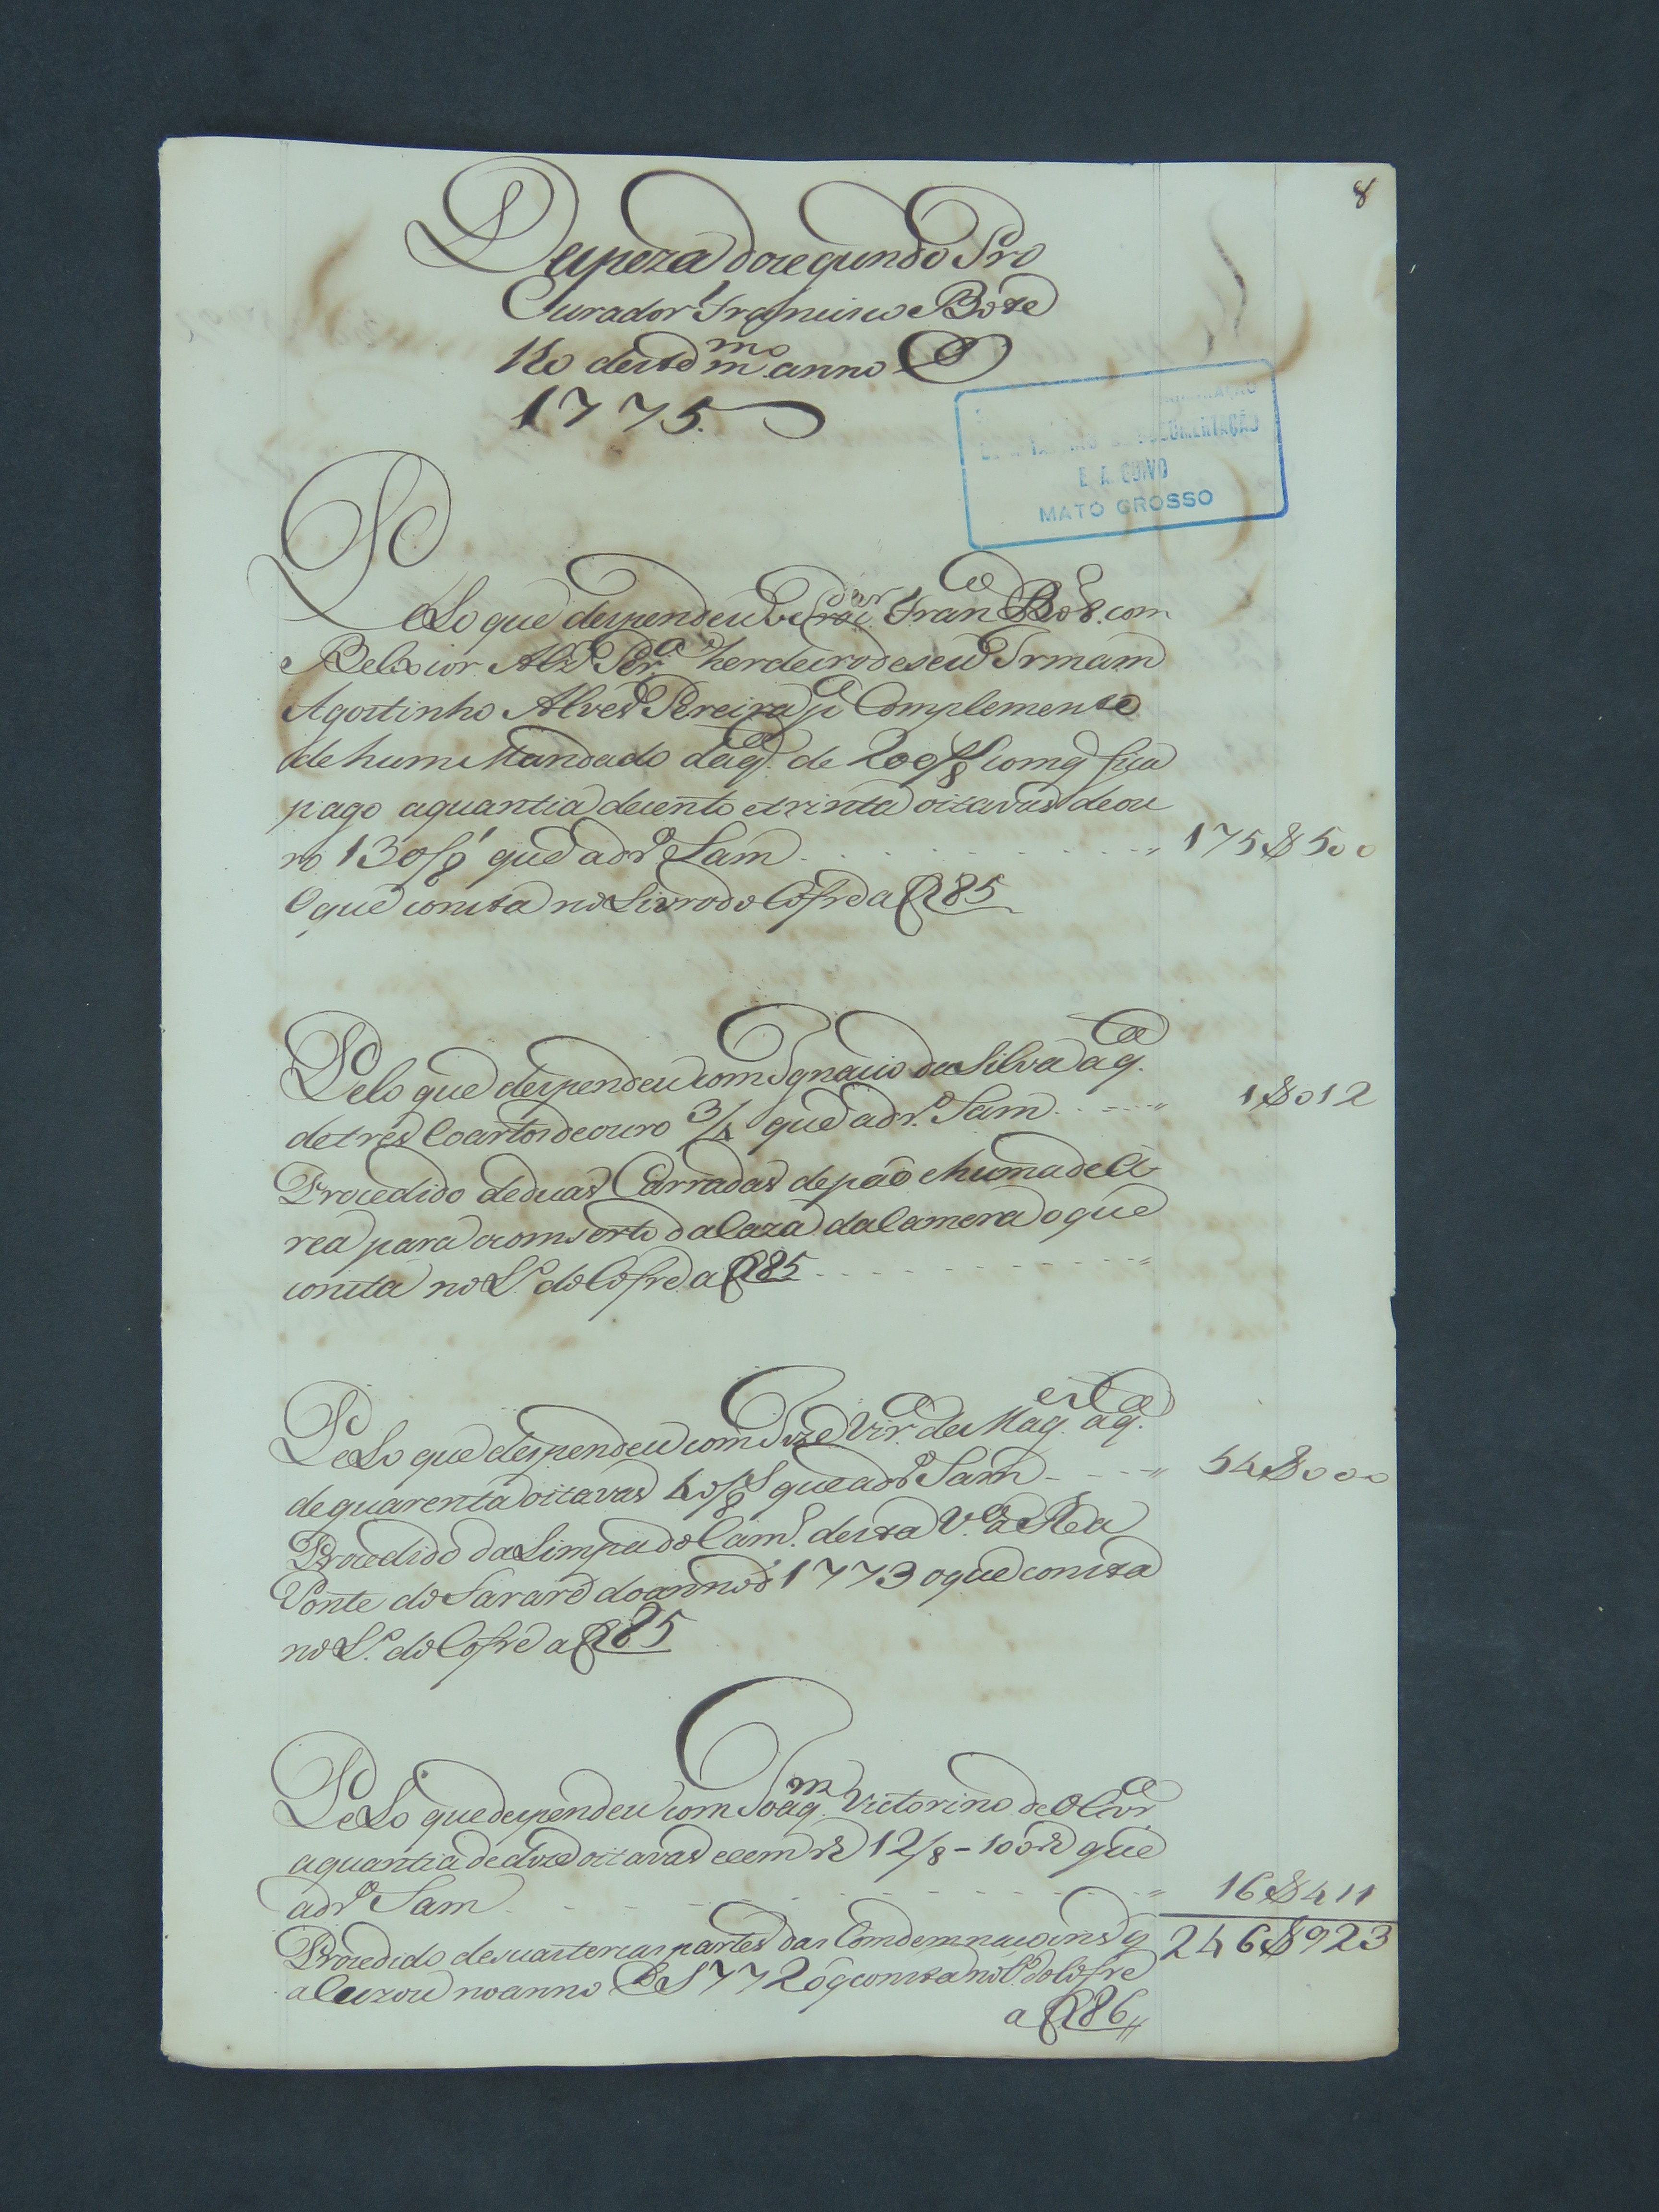 8
Despeza do segundo Pro
Curador Francisco Bote
lho deste m.mo anno
1775.
DOCUMENTAÇÃO
E A QUIVO
MATO GROSSO
Pelo que despendeu o Fran.co Bot.o com
Belxior Alz' Per.a herdeiro de seu Irmam
Agostinho Alves Pereira p.a Complemento
de hum Mandado da q.ta de 200/8.as com q fica
pago aquantia de cento etrinta oitavas de ou
ro 130/8.as que a dr.o Sam 175$500
O que consta no Livro do Cofre a f 85
Pelo que despendeu com Ignacio da Silva a q.ta
de tres Coartos de ouro 3/4 que a dr.o Sam 1$012
Procedido de duas Carradas de páo e huma de A
rea para o comserto da Caza da Camera o que
consta no L.o do Cofre a f 85
Pelo que despendeu com Joze Vir.a de Mag.es a q.ta
de quarenta oitavas 40/8.as que a dr.o Sam 54$000
Procedido da Limpa do Cam.o desta V.a a
Ponte do Sararé do anno d' 1773 o que consta
no L.o do Cofre a f 85
Pelo que despendeu com Joaq.m Victorino de Olivr.a
aquantia de doze oitavas e cem r.s 12/8 - 100 r.s que
a dr.o Sam 16$411
Procedido de suas tercas partes das Comdemnacoins q 246$923
a Cuzou no anno de 1772 o q consta no L.o do Cofre
a f 86